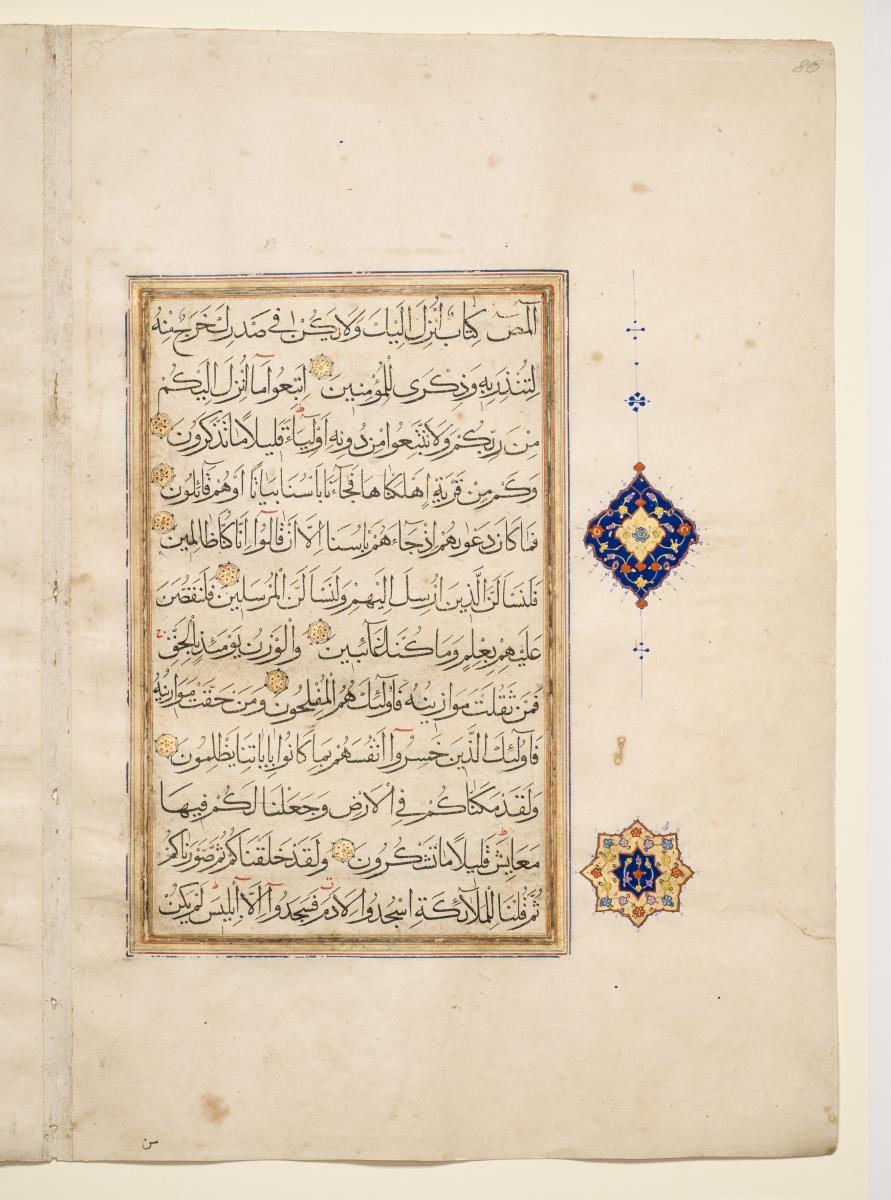 80
الٓمٓصٓ كِتَابٌ اُنْزِلَ اِلَيْكَ وَلَا يَكُنْ فِى صَدْرِكَ حَرَجٌ مِنْهُ
لِتُنْذِرَ بِهِ وَذِكْرَى لِلْمُؤْمِنِينَ اِتَّبِعُوا مَا اُنْزِلَ اِلَيْكُمْ
مِنْ رَبِّكُمْ وَلَا تَتَّبِعُوا مِنْ دُونِهِ اَوْلِيَآءَ قَلِيلًا مَا تَذَكَّرُونَ
وَكَمْ مِنْ قَرْيَةٍ اَهْلَكْنَاهَا فَجَآءَهَا بَاْسُنَا بَيَاتًا اَوْ هُمْ قَآئِلُونَ
فَمَا كَانَ دَعْوٰيهُمْ اِذْ جَآءَهُمْ بَاْسُنَا اِلَّا اَنْ قَالُوا اِنَّا كُنَّا ظَالِمِينَ
فَلَنَسْاَلَنَّ الَّذِينَ اُرْسِلَ اِلَيْهِمْ وَلَنَسْاَلَنَّ الْمُرْسَلِينَ فَلَنَقُصَّنَّ
عَلَيْهِمْ بِعِلْمٍ وَمَا كُنَّا غَآئِبِينَ وَالْوَزْنُ يَوْمَئِذٍ الْحَقُّ
فَمَنْ ثَقُلَتْ مَوَازِينُهُ فَاُولٰٓئِكَ هُمُ الْمُفْلِحُونَ وَمَنْ خَفَّتْ مَوَازِينُهُ
فَاُولٰٓئِكَ الَّذِينَ خَسِرُوٓا اَنْفُسَهُمْ بِمَا كَانُوا بِاٰيَاتِنَا يَظْلِمُونَ
وَلَقَدْ مَكَّنَّاكُمْ فِى الْاَرْضِ وَجَعَلْنَا لَكُمْ فِيهَا
مَعَايِشَ قَلِيلًا مَا تَشْكُرُونَ وَلَقَدْ خَلَقْنَاكُمْ ثُمَّ صَوَّرْنَاكُمْ
ثُمَّ قُلْنَا لِلْمَلٰٓئِكَةِ اسْجُدُوا لِاٰدَمَ فَسَجَدُوٓا اِلَّآ اِبْلِيسَ لَمْ يَكُنْ
من